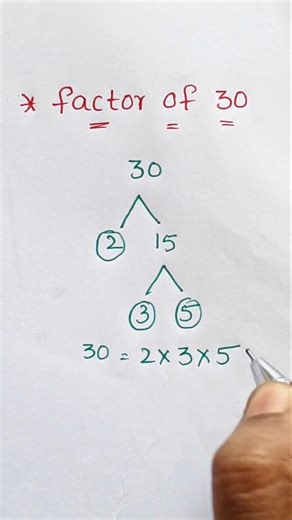 * factor of 30
30
2 15
3 5
30 = 2 × 3 × 5